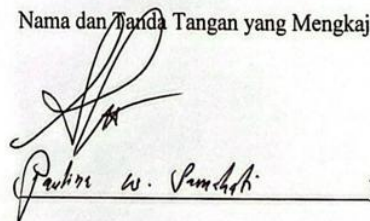 Nama dan Tanda Tangan yang Mengkaji
Pauline W.